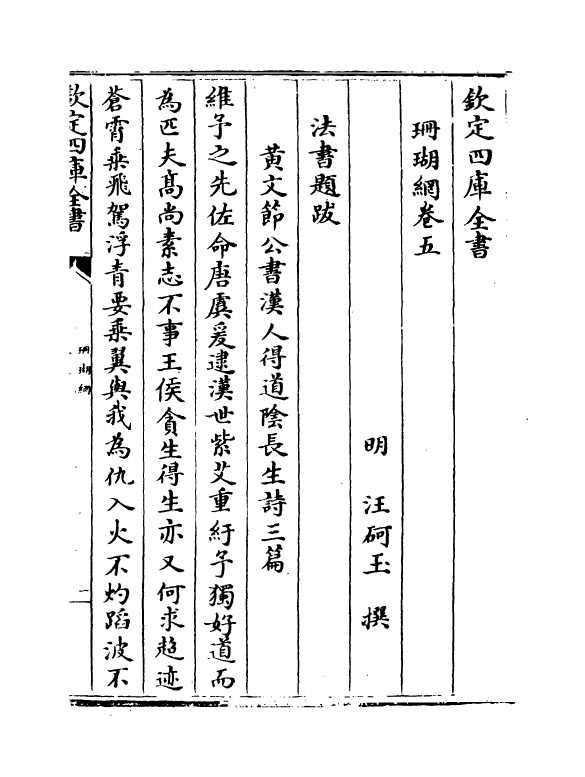 欽定四庫全書
珊瑚網卷五
明 汪砢玉 撰
法書題跋
黃文節公書漢人得道陰長生詩三篇
維予之先佐命唐虞爰逮漢世紫艾重紆予獨好道而
為匹夫高尚素志不事王侯貪生得生亦又何求超迹
蒼霄乘飛駕浮青要乘翼與我為仇入火不灼蹈波不
欽定四庫全書
珊瑚網